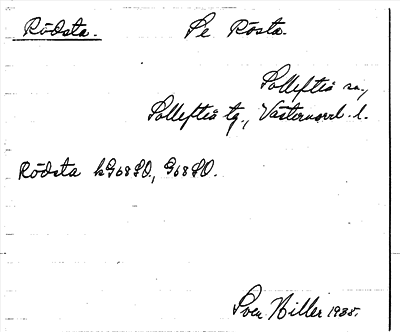 Rödsta. Se Rösta.
Sollefteå sn,
Sollefteå tg., Västernorrl. l.
Rödsta kG68SO., G68SO.
Sven Hiller 1935.